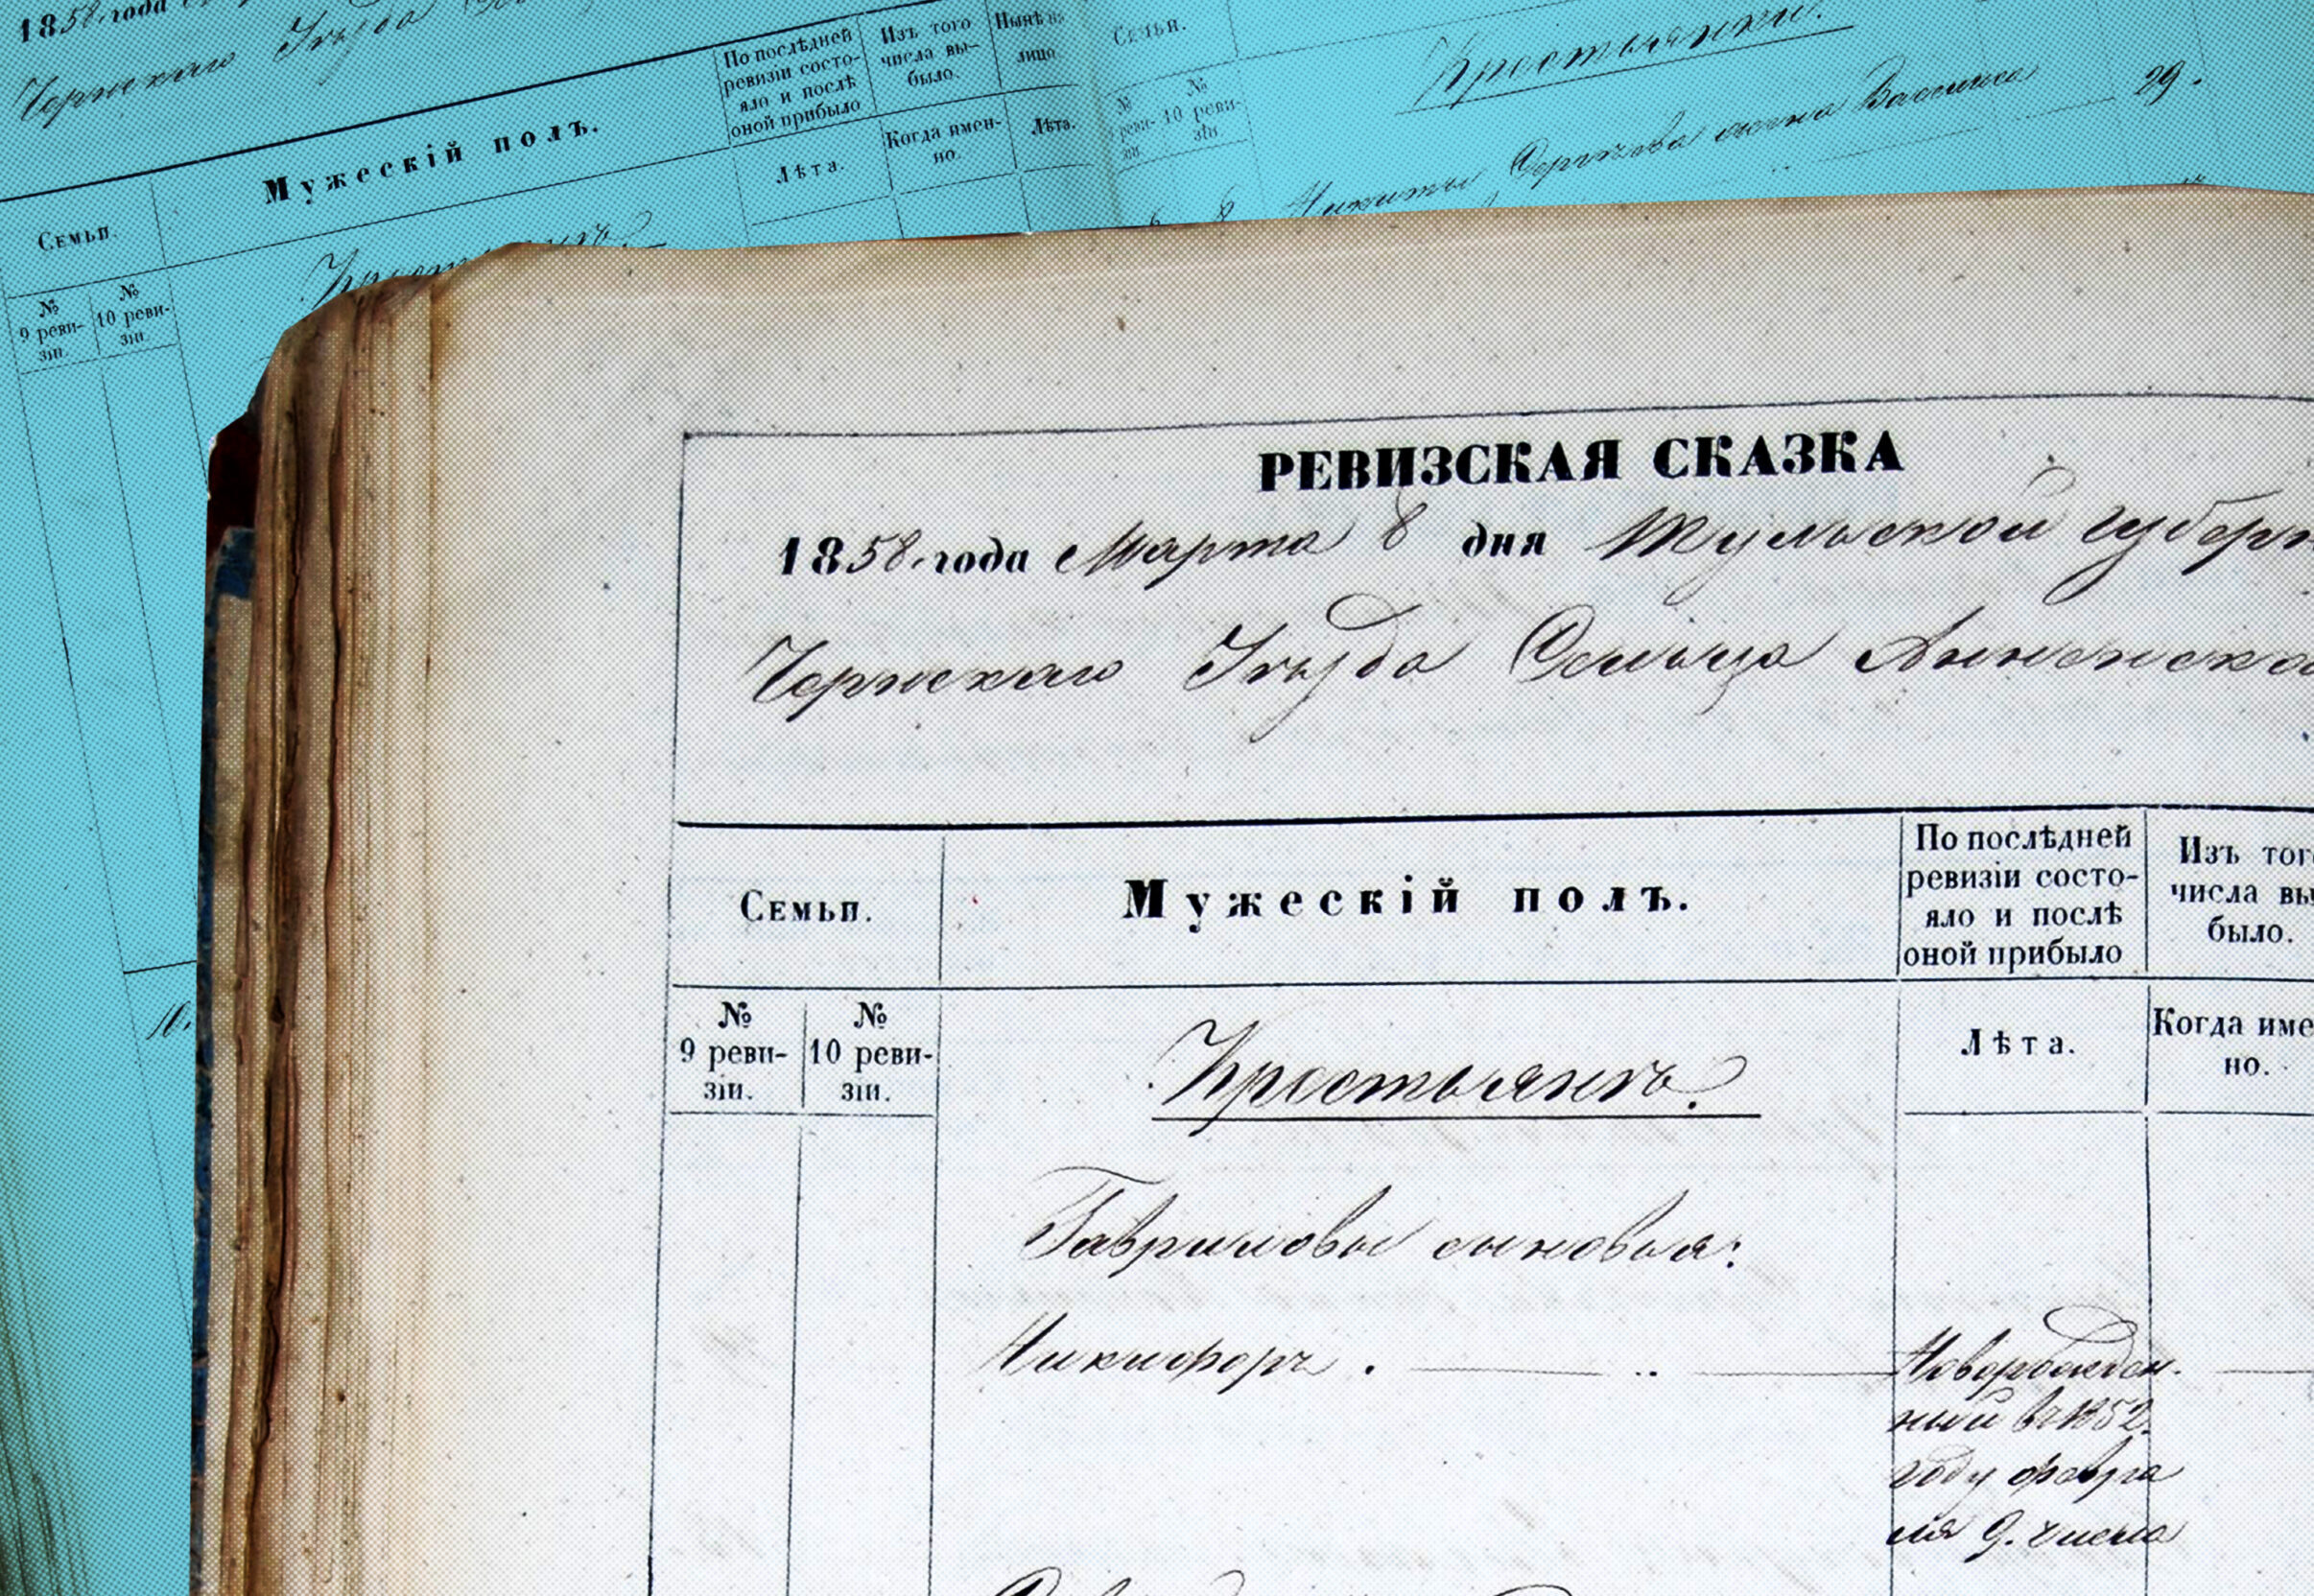 1858. года
Чернскаго Уѣзда
Мужескій полъ.
По послѣдней
ревизіи состо-
яло и послѣ
оной прибыло
Изъ того
числа вы-
было.
Нынѣ на
лицо.
Семьи.
Лѣта.
Когда имен-
но.
Лѣта.
Семьи.
№
9 реви-
зіи.
№
10 реви-
зіи
№
реви-
зіи
№
10 реви-
зіи
Крестьянки.
Никиты Сергѣева жена Василиса
29.
6 8
10.
РЕВИЗСКАЯ СКАЗКА
1858. года Марта 8 дня Тульской губерн
Чернскаго Уѣзда Сельца Анненска
Семьи.
Мужескій полъ.
По послѣдней
ревизіи состо-
яло и послѣ
оной прибыло
Изъ того
числа вы
было.
№
9 реви-
зіи.
№
10 реви-
зіи.
Крестьянъ.
Лѣта.
Когда име
но.
Гавриловы сыновья:
Никифоръ.
Новорожден-
ный въ 1852.
году февра
ля 9. числа